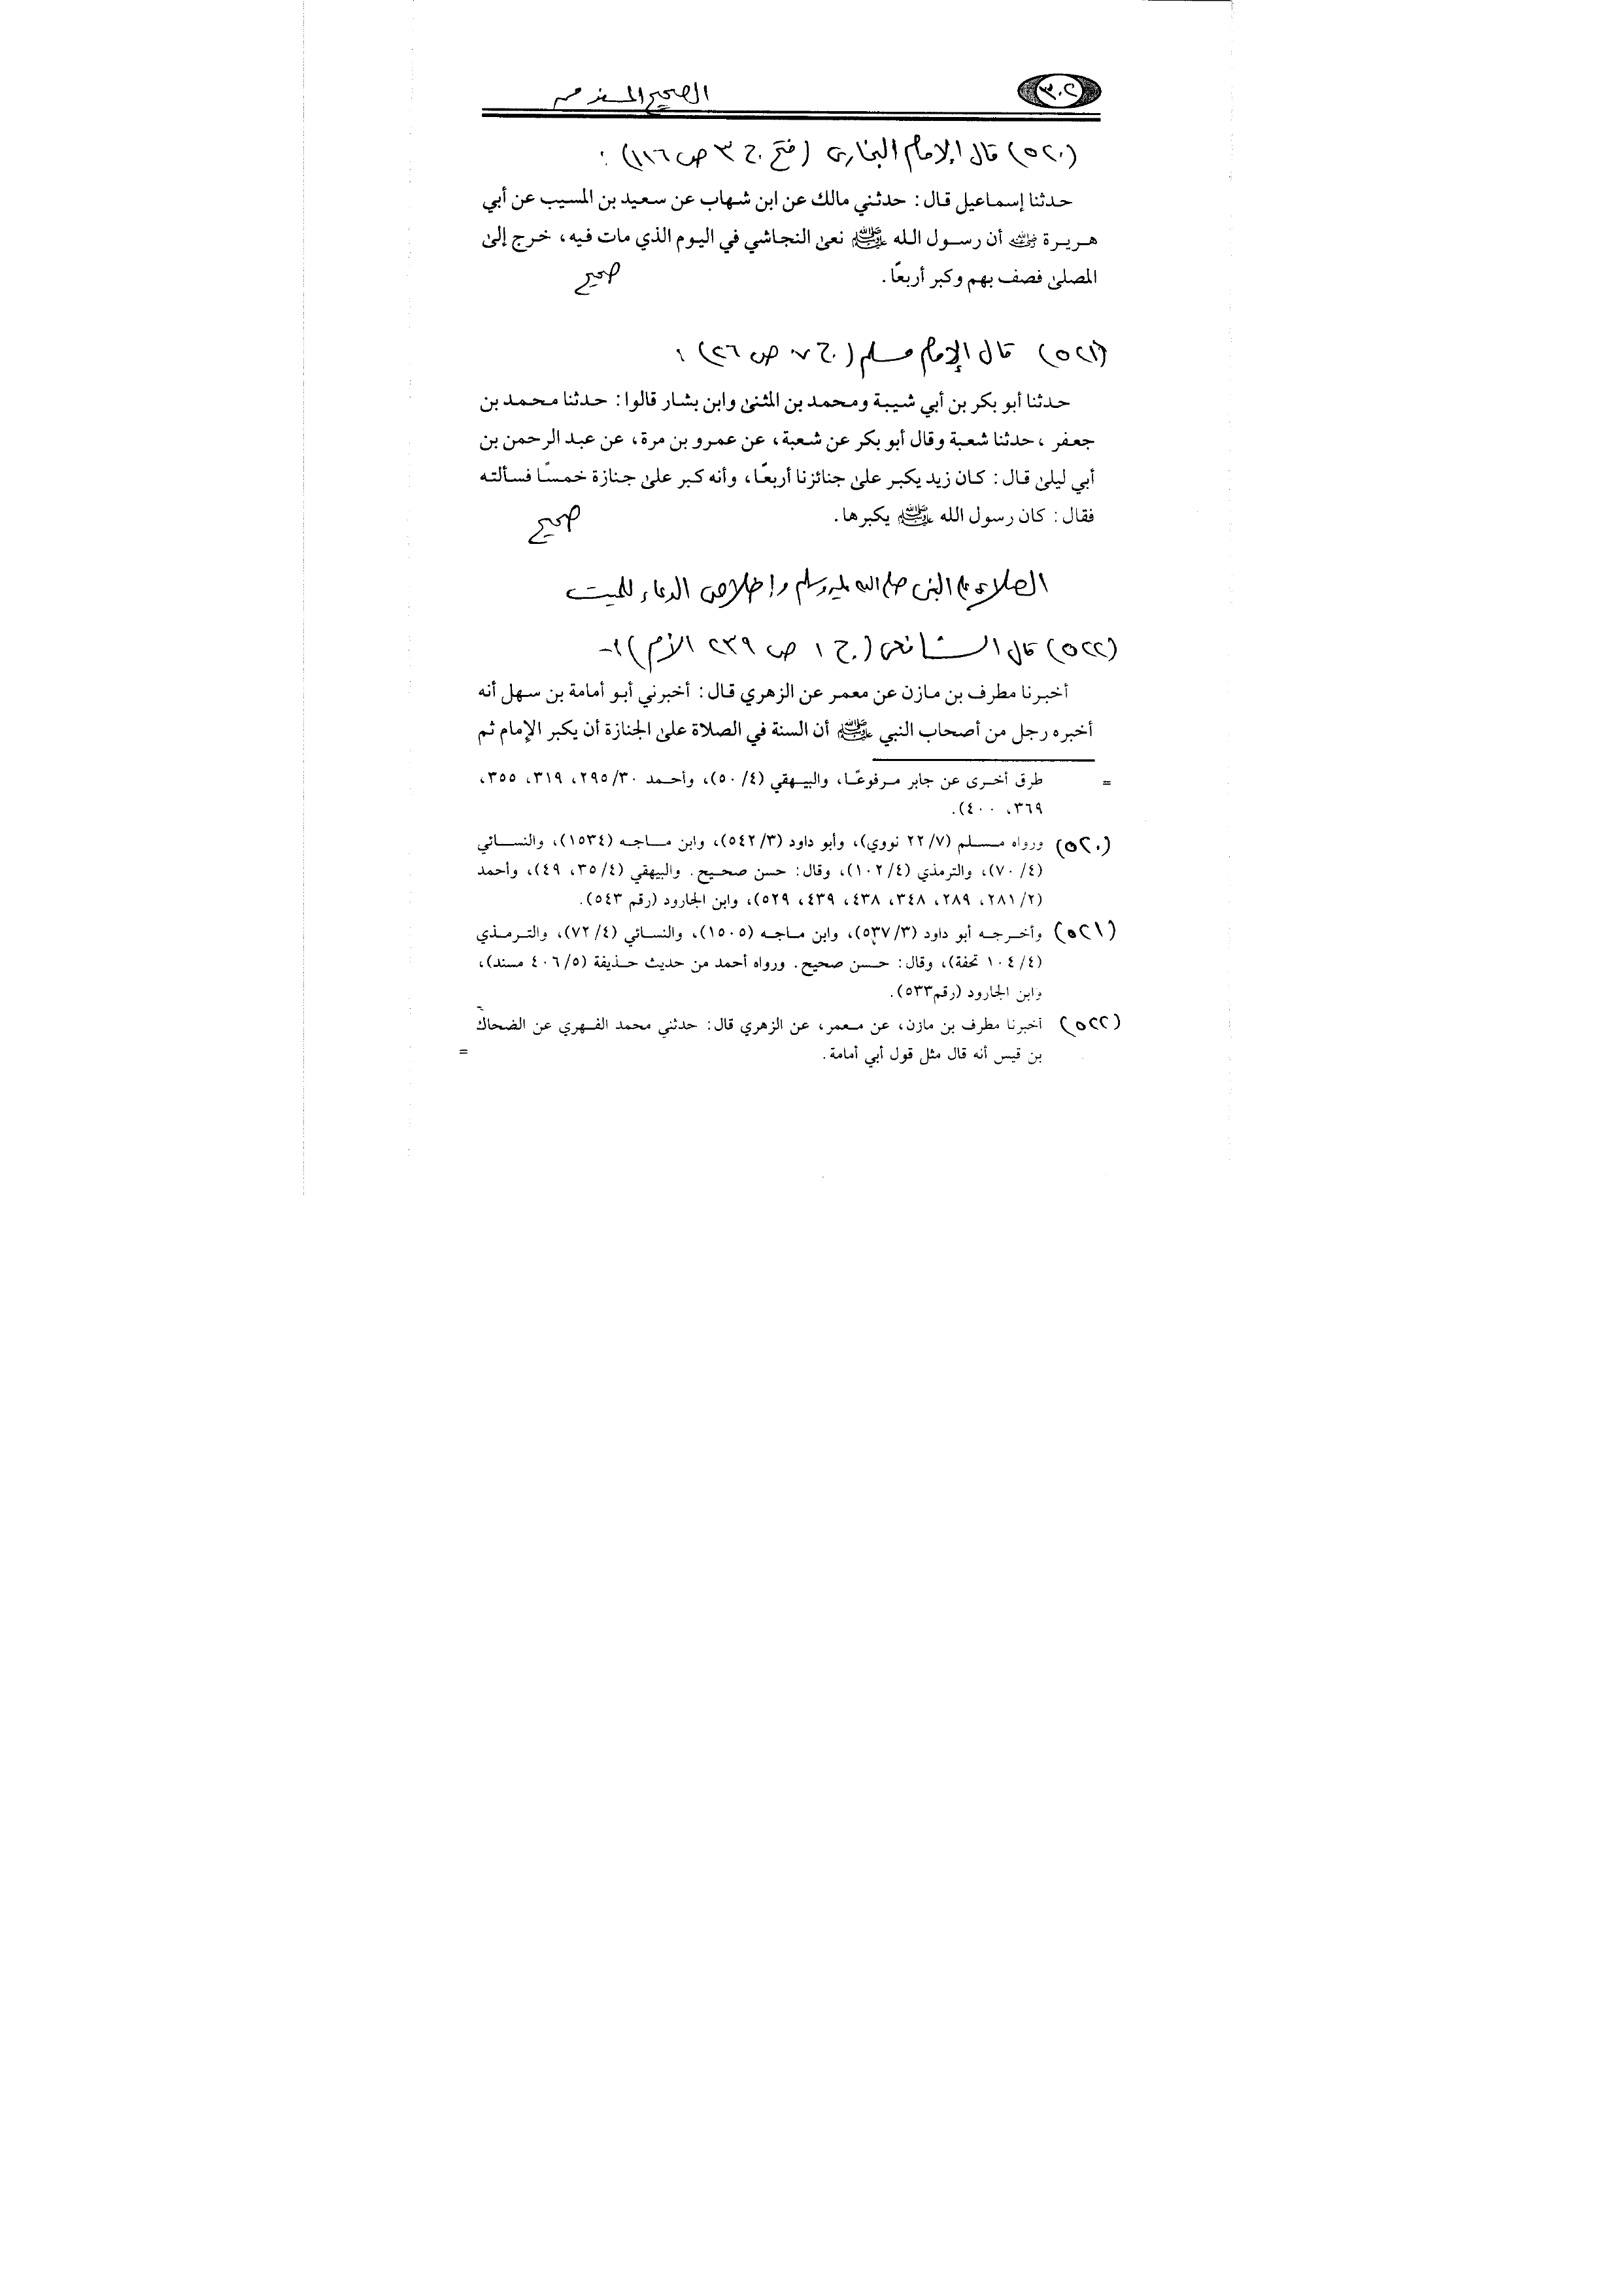 ٣٠٢
الصحيح المسند من
(٥٢٠) قال الإمام البخارى (فتح ج ٣ ص ١١٦) :
حدثنا إسماعيل قال: حدثني مالك عن ابن شهاب عن سعيد بن المسيب عن أبي
هريرة رضي الله عنه أن رسول الله ﷺ نعى النجاشي في اليوم الذي مات فيه، خرج إلى
المصلى فصف بهم وكبر أربعًا.
صحيح
(٥٢١) قال الإمام مسلم (ج ٧ ص ٢٦) :
حدثنا أبو بكر بن أبي شيبة ومحمد بن المثنى وابن بشار قالوا: حدثنا محمد بن
جعفر، حدثنا شعبة وقال أبو بكر عن شعبة، عن عمرو بن مرة، عن عبد الرحمن بن
أبي ليلى قال: كان زيد يكبر على جنائزنا أربعًا، وأنه كبر على جنازة خمسًا فسألته
فقال: كان رسول الله ﷺ يكبرها.
صحيح
الصلاة على النبى صلى الله عليه وسلم وإخلاص الدعاء للميت
(٥٢٢) قال الشافعى (ج ١ ص ٢٣٩ الأم) :-
أخبرنا مطرف بن مازن عن معمر عن الزهري قال: أخبرني أبو أمامة بن سهل أنه
أخبره رجل من أصحاب النبي ﷺ أن السنة في الصلاة على الجنازة أن يكبر الإمام ثم
= طرق أخرى عن جابر مرفوعًا، والبيهقي (٤/ ٥٠)، وأحمد ٣٠/ ٢٩٥، ٣١٩، ٣٥٥،
٣٦٩، ٤٠٠).
(٥٢٠) ورواه مسلم (٧/ ٢٢ نووي)، وأبو داود (٣/ ٥٤٢)، وابن ماجه (١٥٣٤)، والنسائي
(٤/ ٧٠)، والترمذي (٤/ ١٠٢)، وقال: حسن صحيح. والبيهقي (٤/ ٣٥، ٤٩)، وأحمد
(٢/ ٢٨١، ٢٨٩، ٣٤٨، ٤٣٨، ٤٣٩، ٥٢٩)، وابن الجارود (رقم ٥٤٣).
(٥٢١) وأخرجه أبو داود (٣/ ٥٣٧)، وابن ماجه (١٥٠٥)، والنسائي (٤/ ٧٢)، والترمذي
(٤/ ١٠٤ تحفة)، وقال: حسن صحيح. ورواه أحمد من حديث حذيفة (٥/ ٤٠٦ مسند)،
وابن الجارود (رقم ٥٣٣).
(٥٢٢) أخبرنا مطرف بن مازن، عن معمر، عن الزهري قال: حدثني محمد الفهري عن الضحاك
بن قيس أنه قال مثل قول أبي أمامة. =